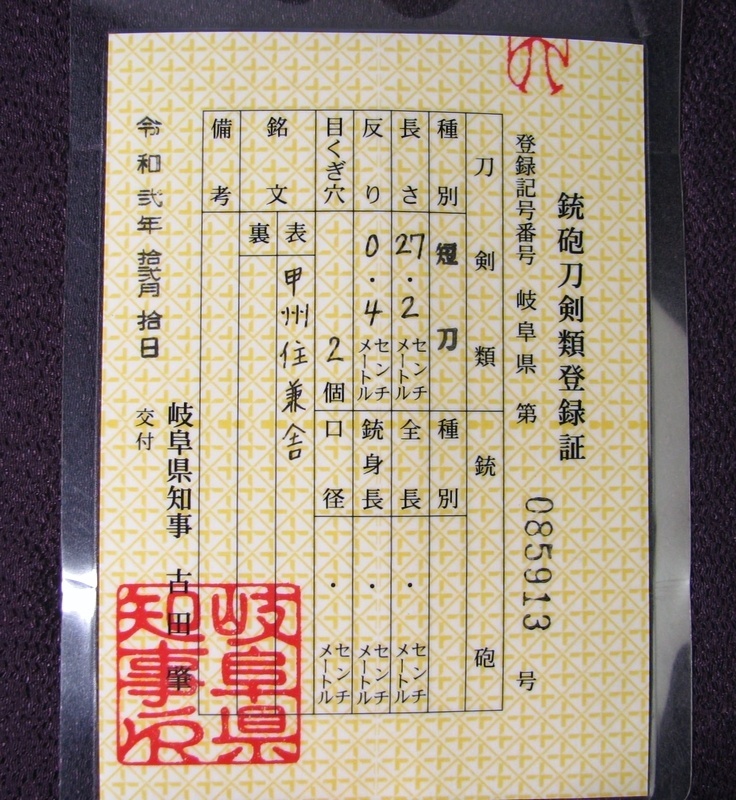 銃砲刀剣類登録証
登録記号番号 岐阜県 第 085913 号
刀剣類 銃砲
種別 短刀 種別
長さ 27.2 センチメートル 全長 ・ センチメートル
反り 0.4 センチメートル 銃身長 ・ センチメートル
目くぎ穴 2個 口径 ・ センチメートル
銘文 表 甲州住兼舎
裏
備考
岐阜県知事 古田 肇
令和弐年拾弐月拾日 交付
岐阜県
知事印